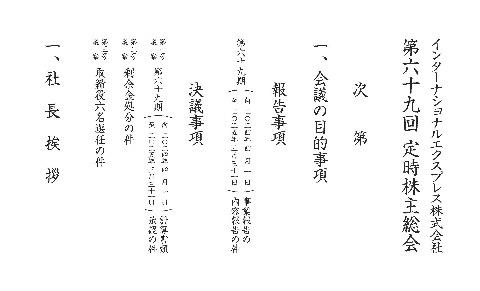 インターナショナルエクスプレス株式会社
第六十九回 定時株主総会
次 第
一、会議の目的事項
報告事項
第六十九期
自 二〇二四年 四月 一日
至 二〇二五年 三月三十一日
事業報告の
内容報告の件
決議事項
第一号
議案
第六十九期
自 二〇二四年 四月 一日
至 二〇二五年 三月三十一日
計算書類
承認の件
第二号
議案
剰余金処分の件
第三号
議案
取締役六名選任の件
一、社長挨拶